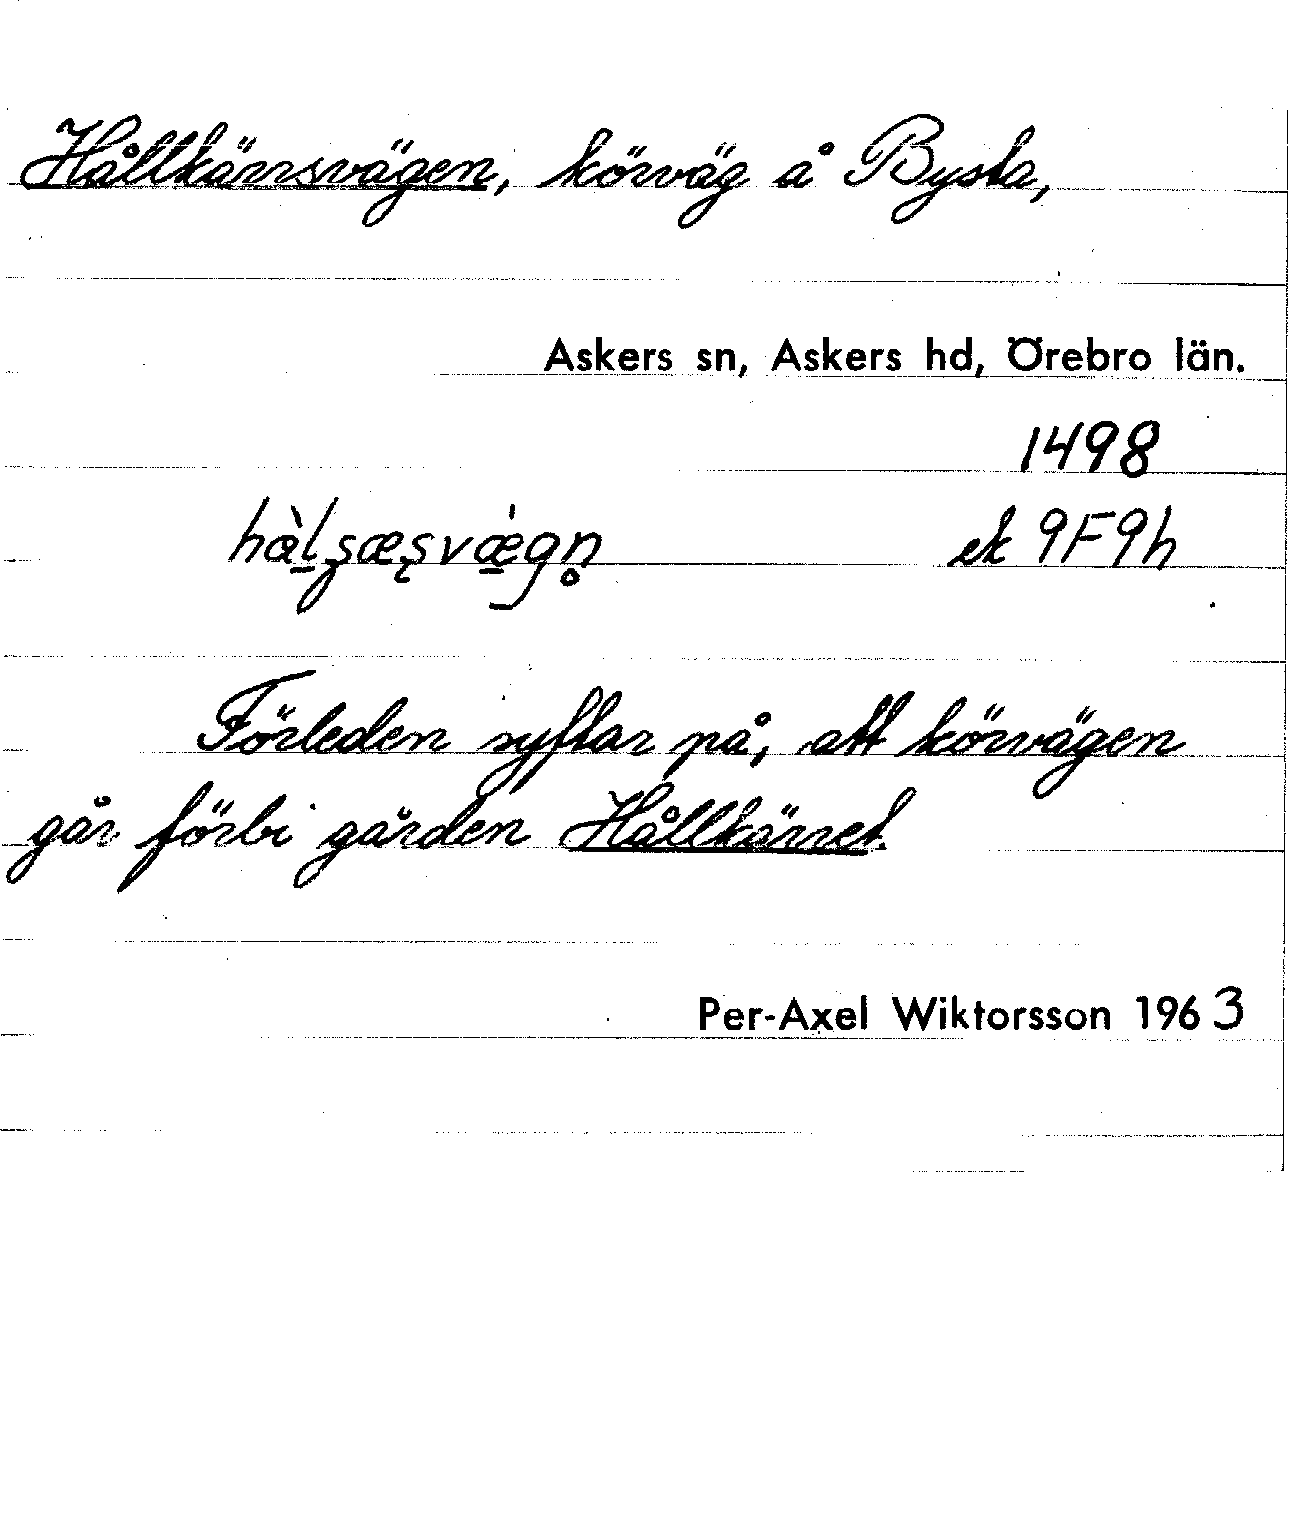 Hållkärrsvägen, körväg å Bysta,
Askers sn, Askers hd, Örebro län.
1498
ek 9F9h
Förleden syftar på, att körvägen
går förbi gården Hållkärret.
Per-Axel Wiktorsson 1963